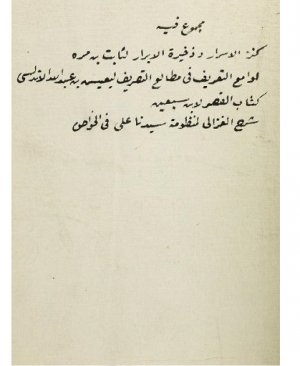 مجموع فيه
كنز الاسرار وذخيرة الابرار لثابت بن مره
لوامع التعريف في مطالع التصريف ليعيس بن عبد الله الاندلسى
كتاب القصد لابن سبعين
شرح الغزالى لمنظومة سيدنا على فى الخواص